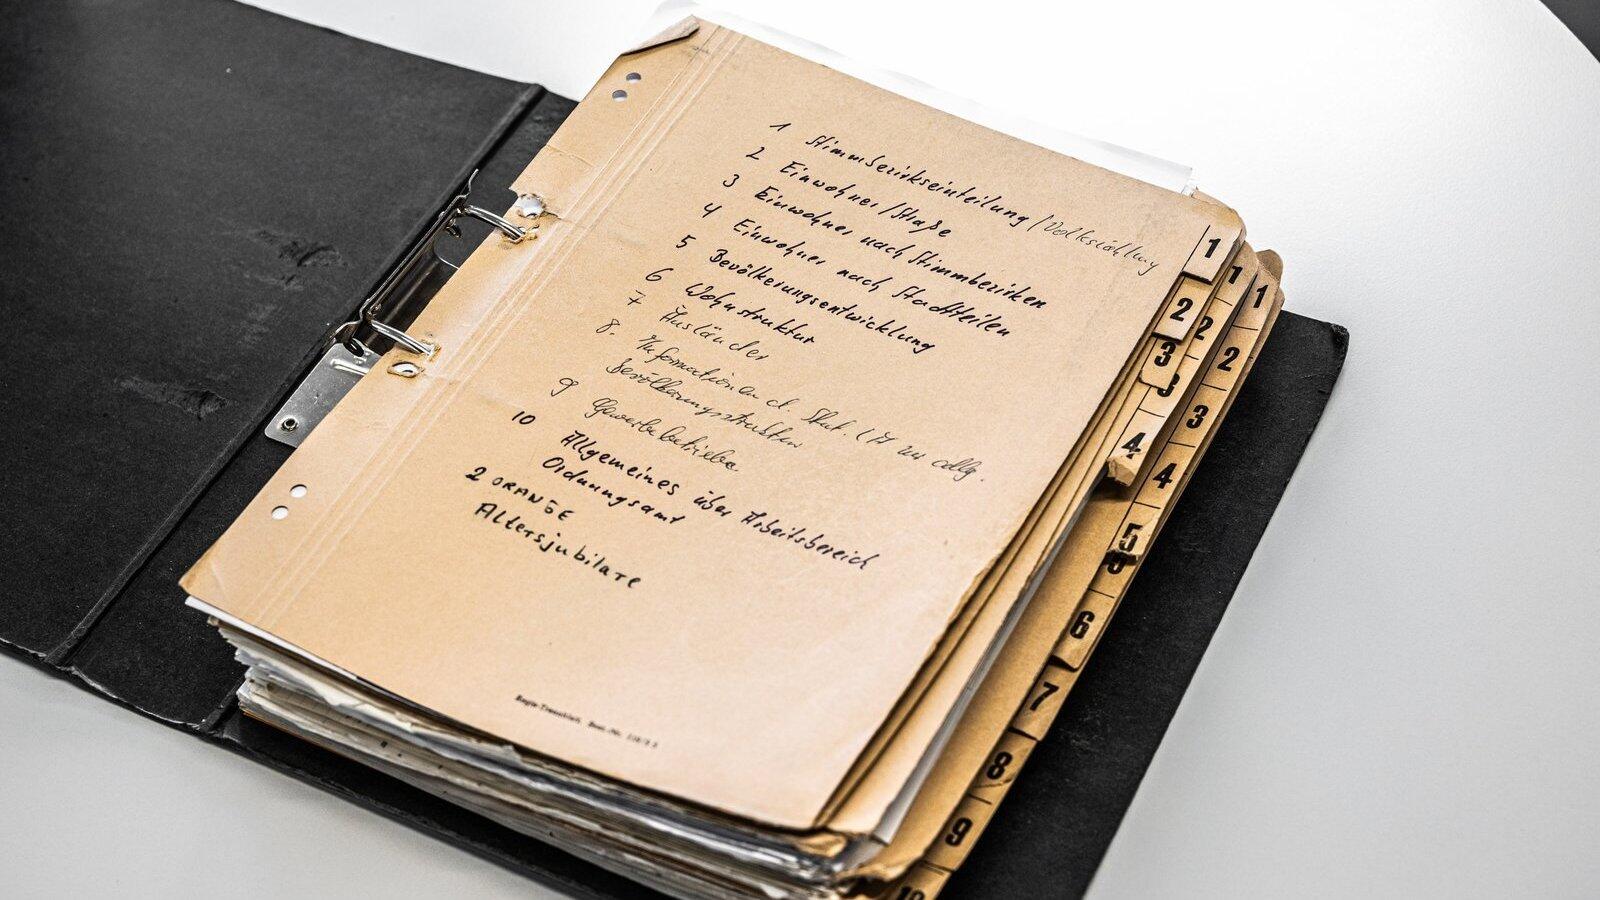 1 Stimmbezirkseinteilung / Volkszählung
2 Einwohner/Straße
3 Einwohner nach Stimmbezirken
4 Einwohner nach Stadtteilen
5 Bevölkerungsentwicklung
6 Wohnstruktur
7 Ausländer
8. Informationen d. Stat. (A zu allg.
Bevölkerungsstruktur
9 Gewerbebetriebe
10 Allgemeines über Arbeitsbereich
Ordnungsamt
2 ORANGE
Altersjubilare
1
2
3
4
5
1
2
3
1
2
3
4
5
6
7
8
9
10